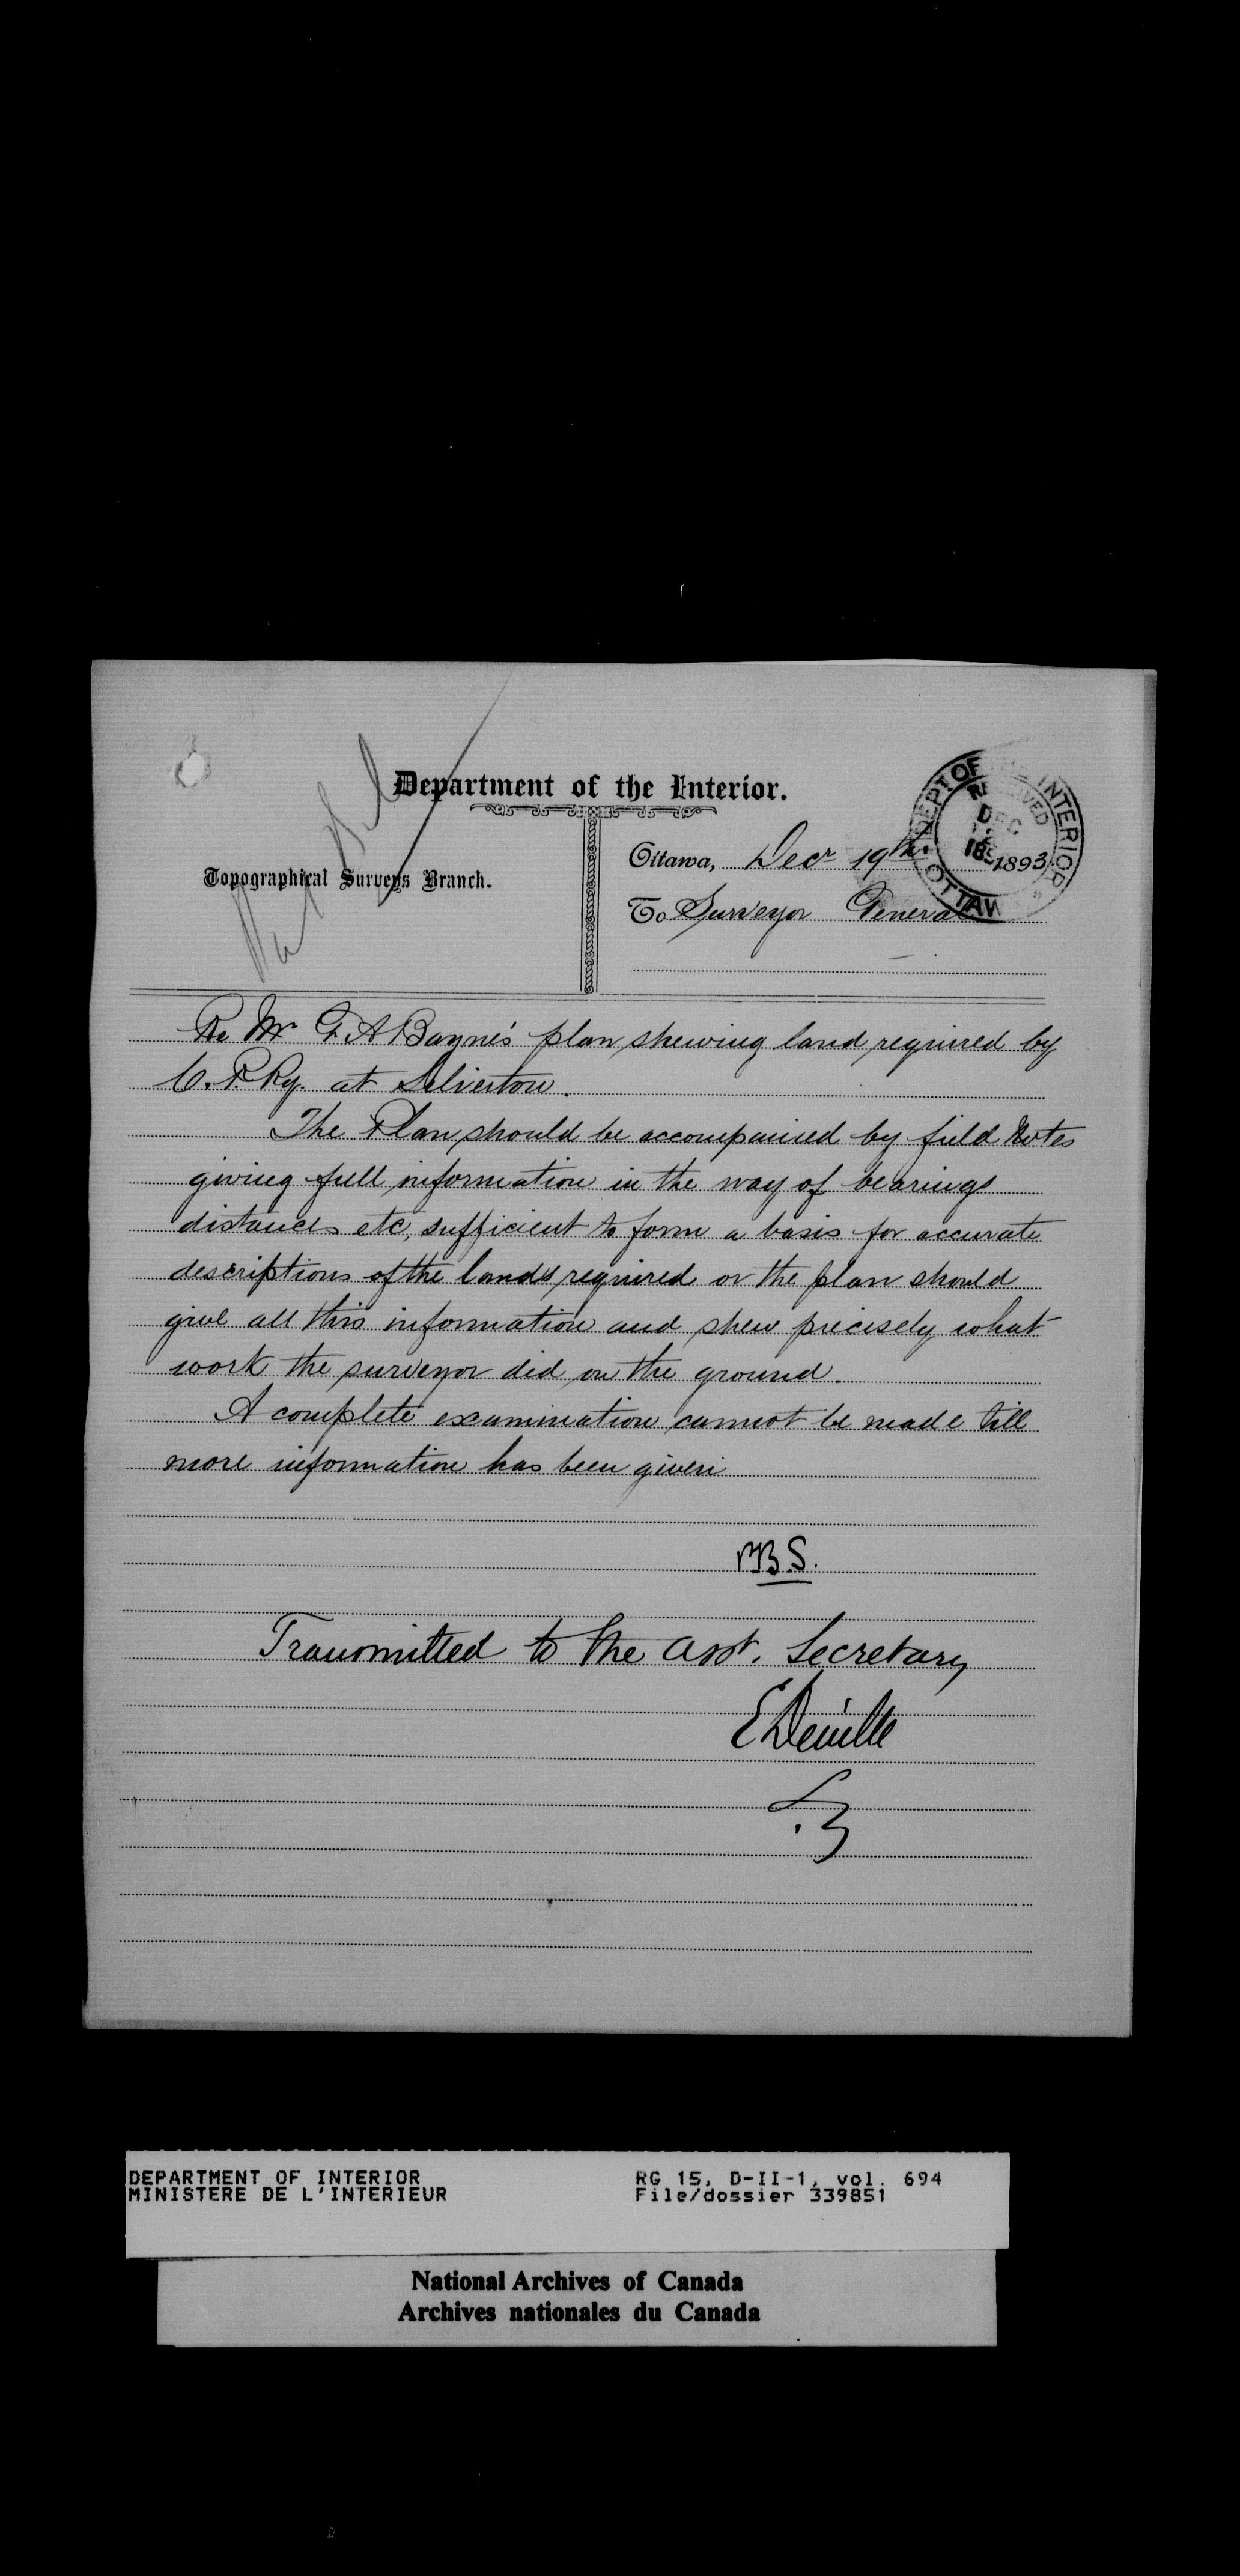 Department of the Interior.
Topographical Surveys Branch.
DEPT OF THE INTERIOR
RECEIVED
DEC
OTTAWA
Ottawa, Decr 19th 1893
To Surveyor General
Re Mr G. A Bayne's plan shewing land required by
C. P. Ry. at Silverton.
The Plan should be accompanied by field Notes
giving full information in the way of bearings
distances etc, sufficient to form a basis for accurate
descriptions of the lands required or the plan should
give all this information and shew precisely what
work the surveyor did on the ground.
A complete examination cannot be made till
more information has been given
M B S.
Transmitted to the Asst. Secretary
E Deville
S.G
DEPARTMENT OF INTERIOR
MINISTERE DE L'INTERIEUR
RG 15, D-II-1, vol. 694
File/dossier 339851
National Archives of Canada
Archives nationales du Canada